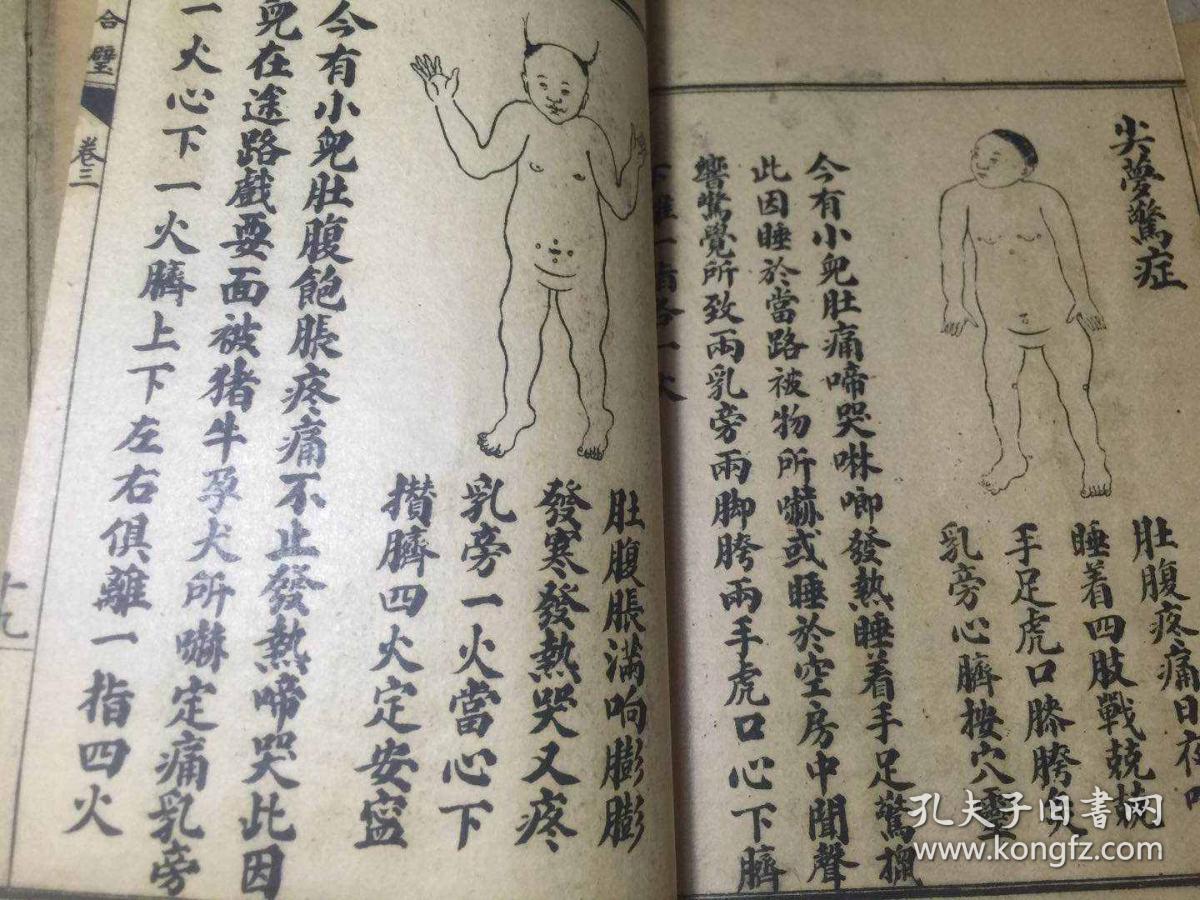 尖夢驚症
肚腹疼痛日夜
睡着四肢戰兢兢
手足虎口膝胯灸
乳旁心臍按穴靈
今有小兒肚痛啼哭啉唧發熱睡着手足驚搐
此因睡於當路被物所嚇或睡於空房中聞聲
響驚覺所致兩乳旁兩脚胯兩手虎口心下臍
下離一指各一火
肚腹脹滿响膨膨
發寒發熱哭又疼
乳旁一火當心下
攢臍四火定安寍
今有小兒肚腹飽脹疼痛不止發熱啼哭此因
兒在途路戲耍面被猪牛孕犬所嚇定痛乳旁
一火心下一火臍上下左右俱離一指四火
合璧
卷三
十九
孔夫子旧書网
www.kongfz.com